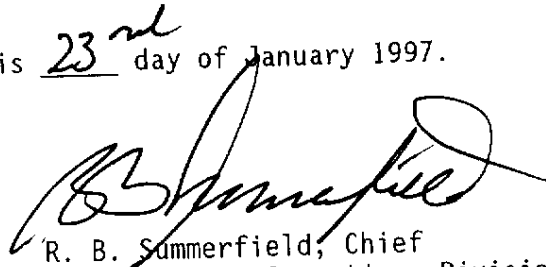 is 23rd day of January 1997.
RBSummerfield
R. B. Summerfield, Chief